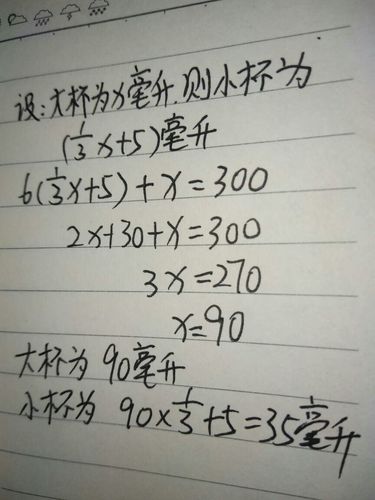 设:大杯为x毫升.则小杯为
(1/3x+5)毫升
6(1/3x+5)+x=300
2x+30+x=300
3x=270
x=90
大杯为 90毫升
小杯为 90×1/3+5=35毫升